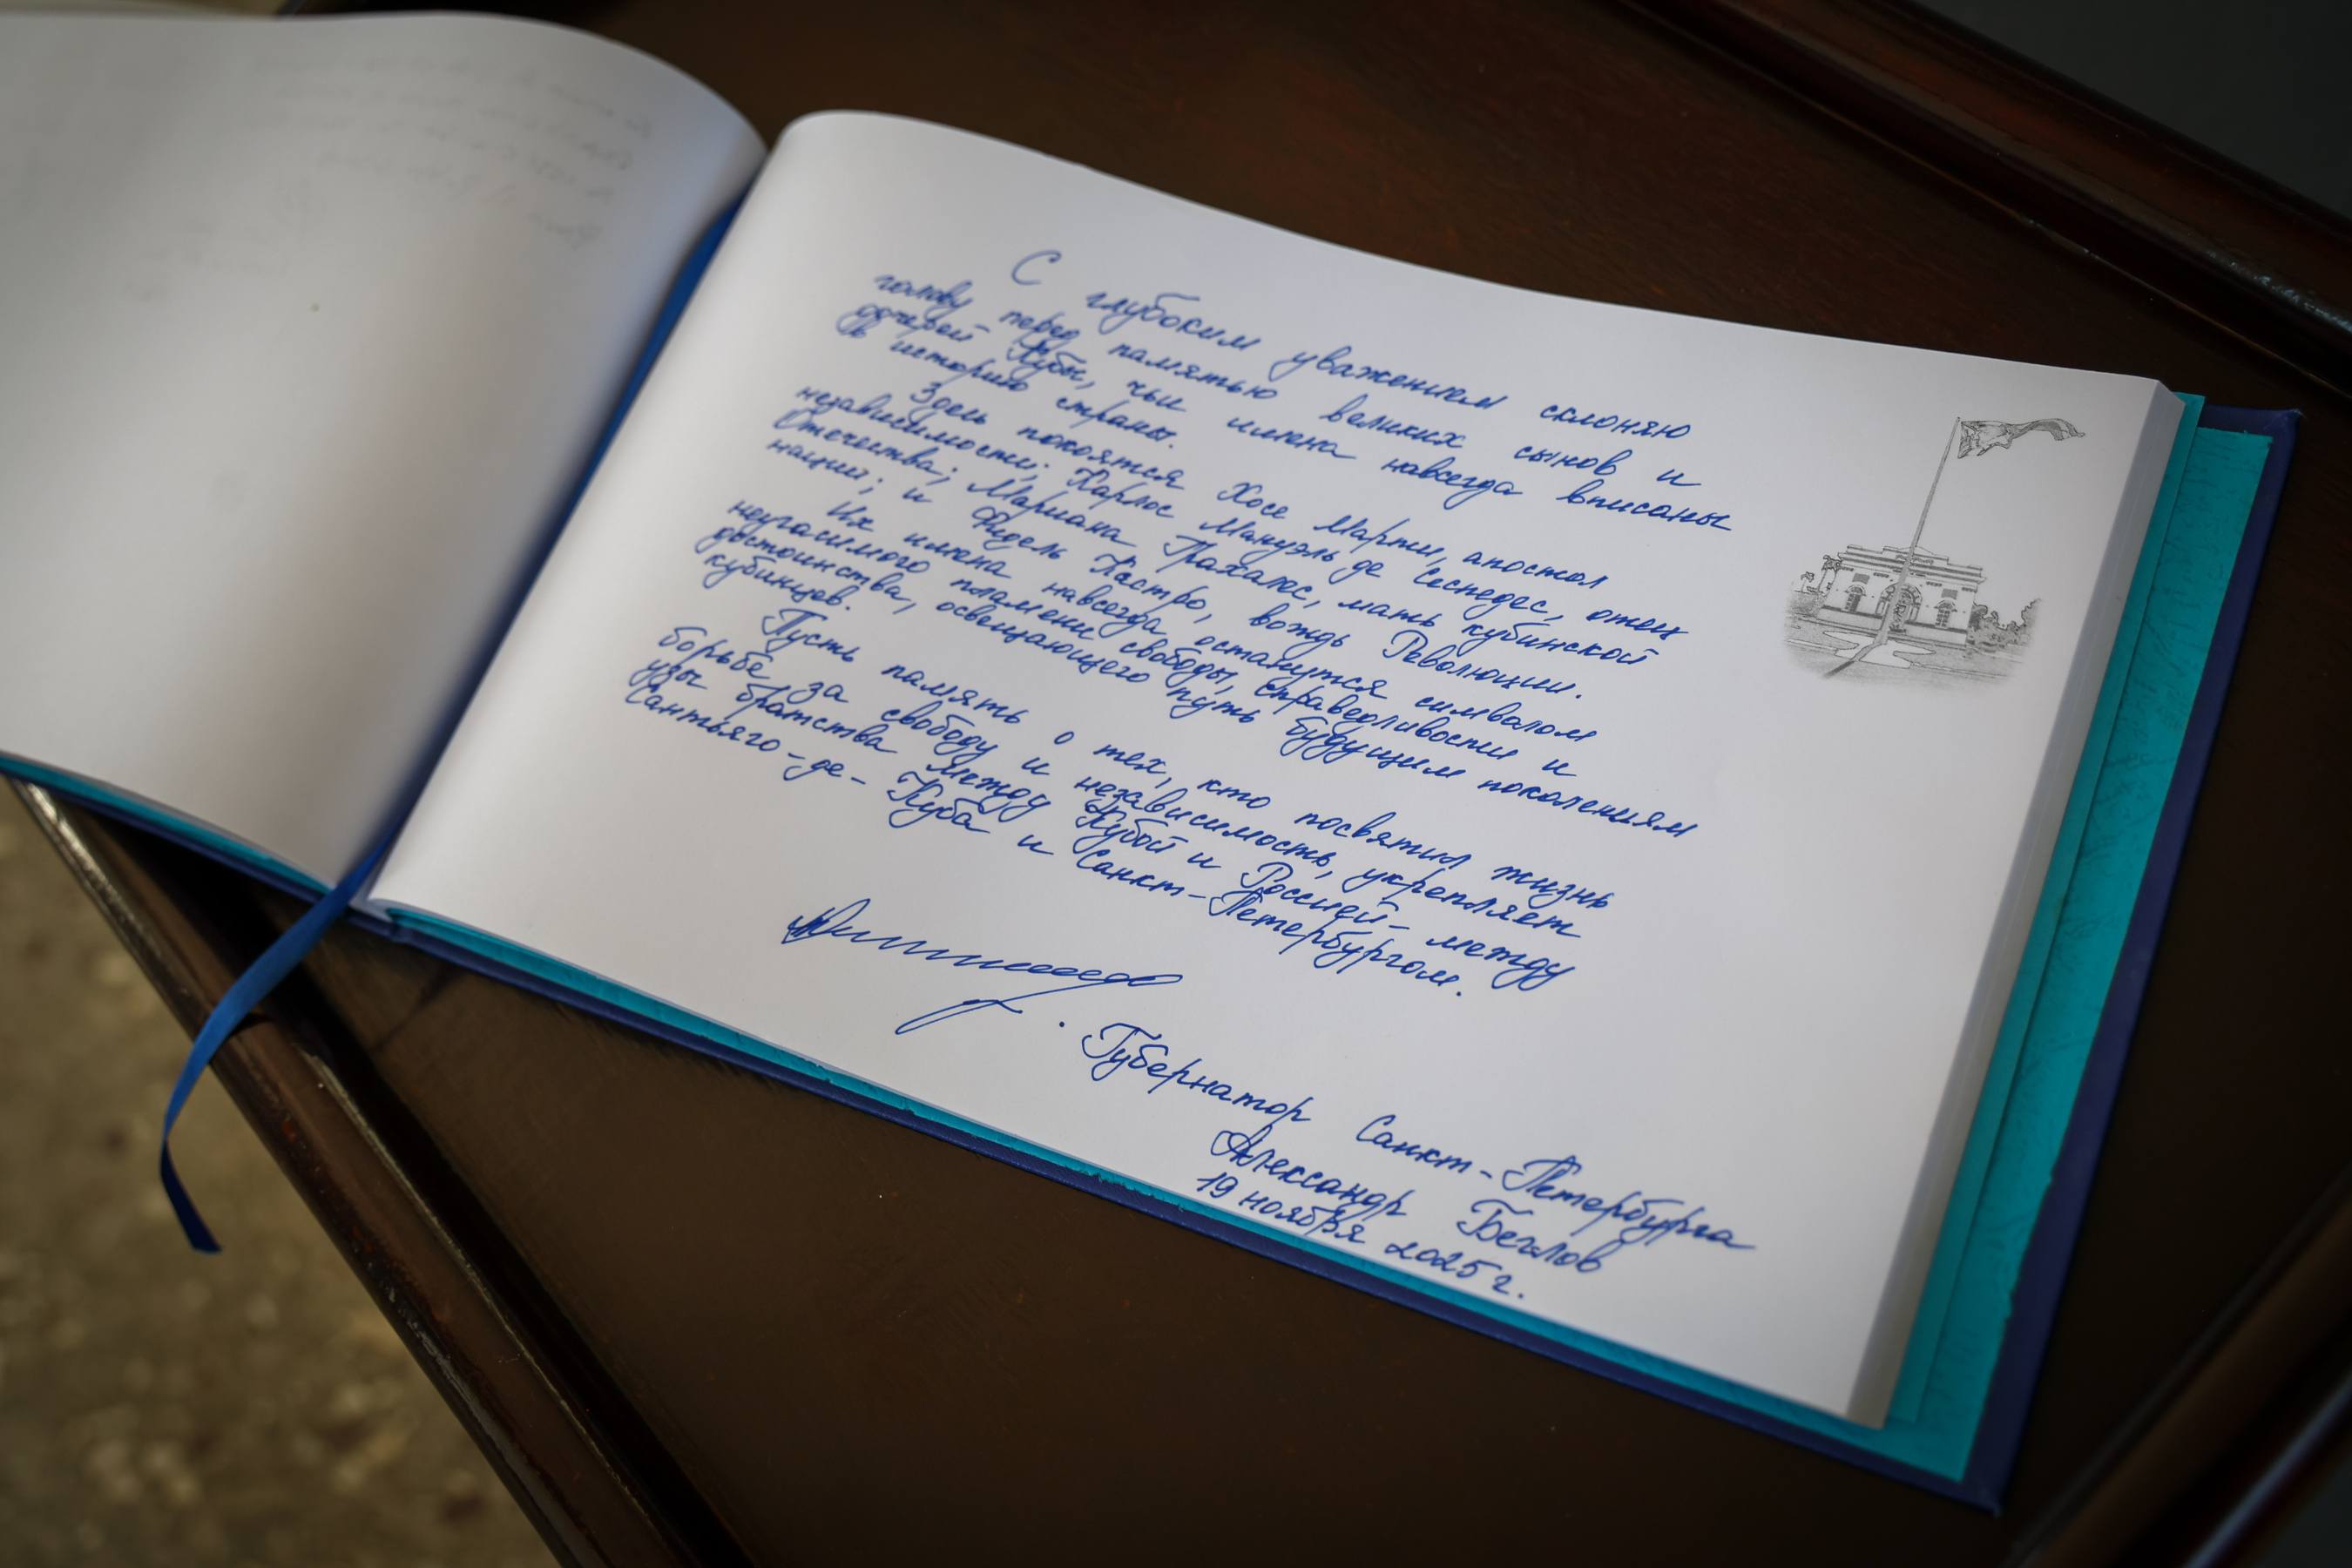 С глубоким уважением склоняю
голову перед памятью великих сынов и
дочерей Кубы, чьи имена навсегда вписаны
в историю страны.
Здесь покоятся Хосе Марти, апостол
независимости; Карлос Мануэль де Сеспедес, отец
Отечества; Мариана Грахалес, мать кубинской
нации; и Фидель Кастро, вождь Революции.
Их имена навсегда останутся символом
неугасимого пламени свободы, справедливости и
достоинства, освещающего путь будущим поколениям
кубинцев.
Пусть память о тех, кто посвятил жизнь
борьбе за свободу и независимость, укрепляет
узы братства между Кубой и Россией - между
Сантьяго-де-Куба и Санкт-Петербургом.
Губернатор Санкт-Петербурга
Александр Беглов
19 ноября 2025 г.